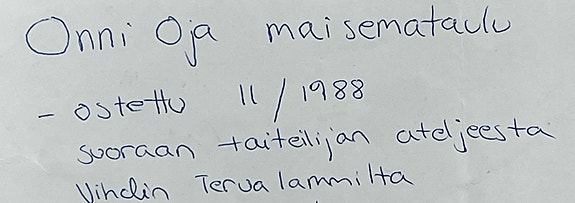 Onni Oja maisemataulu
- ostettu 11/1988
suoraan taiteilijan ateljeesta
Vihdin Tervalammilta